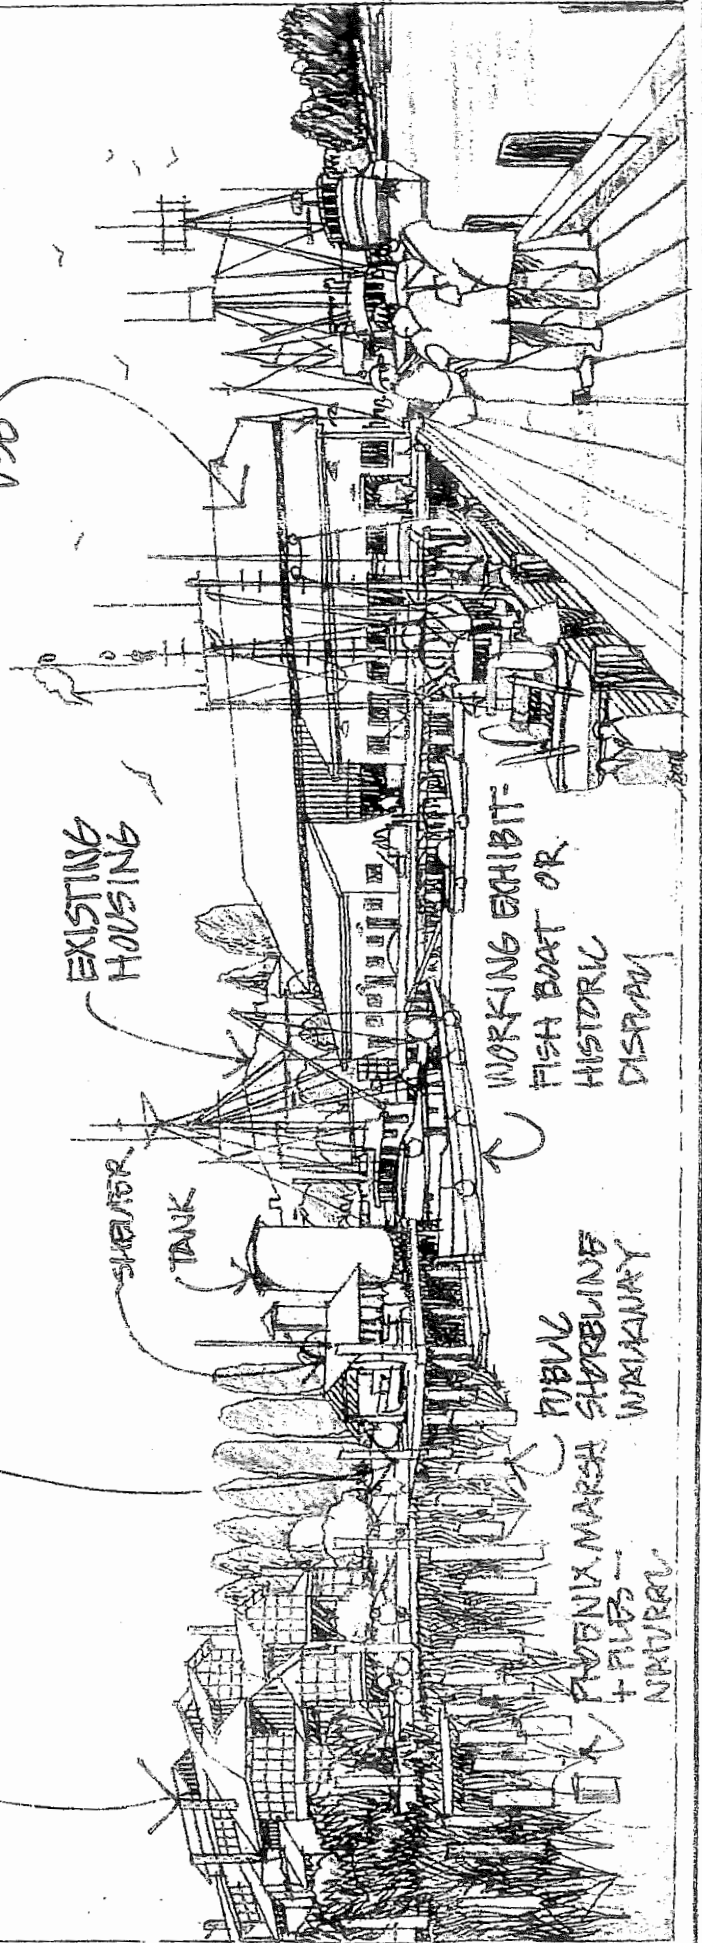 EXISTING
HOUSING
SHELTER
TANK
WORKING EXHIBIT-
FISH BOAT OR
HISTORIC
DISPLAY
PUBLIC
SHORELINE
WALKWAY
PHOENIX MARSH
+ PILES -
NATURAL